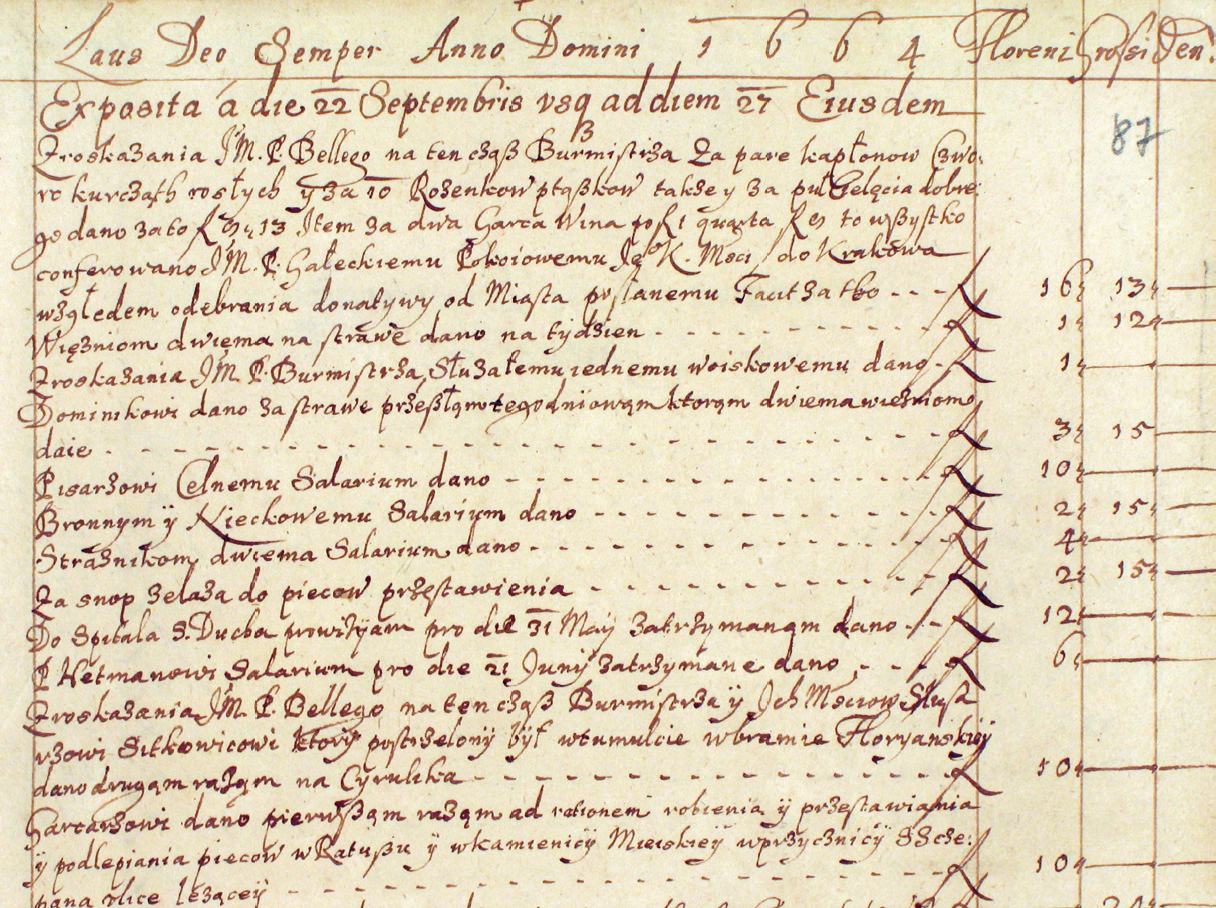 Laus Deo Semper Anno Domini 1 6 6 4 Floreni Grossi Den:
Exposita á die 22 Septembris vsq ad diem 27 Eiusdem
87
Zroskazania JM. P. Bellego na ten cząß Burmistrza Za pare kapłonow Czwo:
ro kurcząth rosłych ÿ za 10 Rozenkow ptaßkow takze y za puł Cielęcia dobre:
go dano za to 13 Item za dwa Garca Wina po quarta to wßystko
conferowano JM. P. Gałeckiemu Pokoiowemu Je° K. Msci do Krakowa
względem odebrania donatywy od Miasta Facit za tho - - - 16 13
Więzniom dwiema na strawe dano na tydzien - - - 1 12
Zroskazania JM. P. Burmistrza Służałemu iednemu woiskowemu dano - 1
Dominikowi dano za strawe przeßłąm tegodniowąm ktorąm dwiema więzniom
daie - - - 3 15
Pisarzowi Celnemu Salarium dano - - - 10
Bronnym ÿ Nieckowemu Salarium dano - - - 2 15
Straznikom dwiema Salarium dano - - - 4
Za snop zelaza do piecow przestawienia - - - 2 15
Do Spitala S. Ducha prowizyam pro die 31 Maÿ zatrzymanąm dano - - - 12
P Hetmanowi Salarium pro die 21 Junÿ zatrzymane dano - - - 6
Zroskazania JM. P. Bellego na ten cząß Burmistrza ÿ Jch Msciow Słusa
rzowi Sitkowicowi ktorÿ postrzelonÿ bÿł wtumulcie wbramie Florÿanskieÿ
dano drugąm raząm na Cyrulika - - - 10
Garcarzowi dano pierwßąm raząm ad rationem robienia ÿ przestawiania
ÿ podlepiania piecow w Ratußu ÿ wkamienicÿ Mieiskieÿ wprzÿcznicÿ S Scze:
pana vlice leząceÿ - - - 10